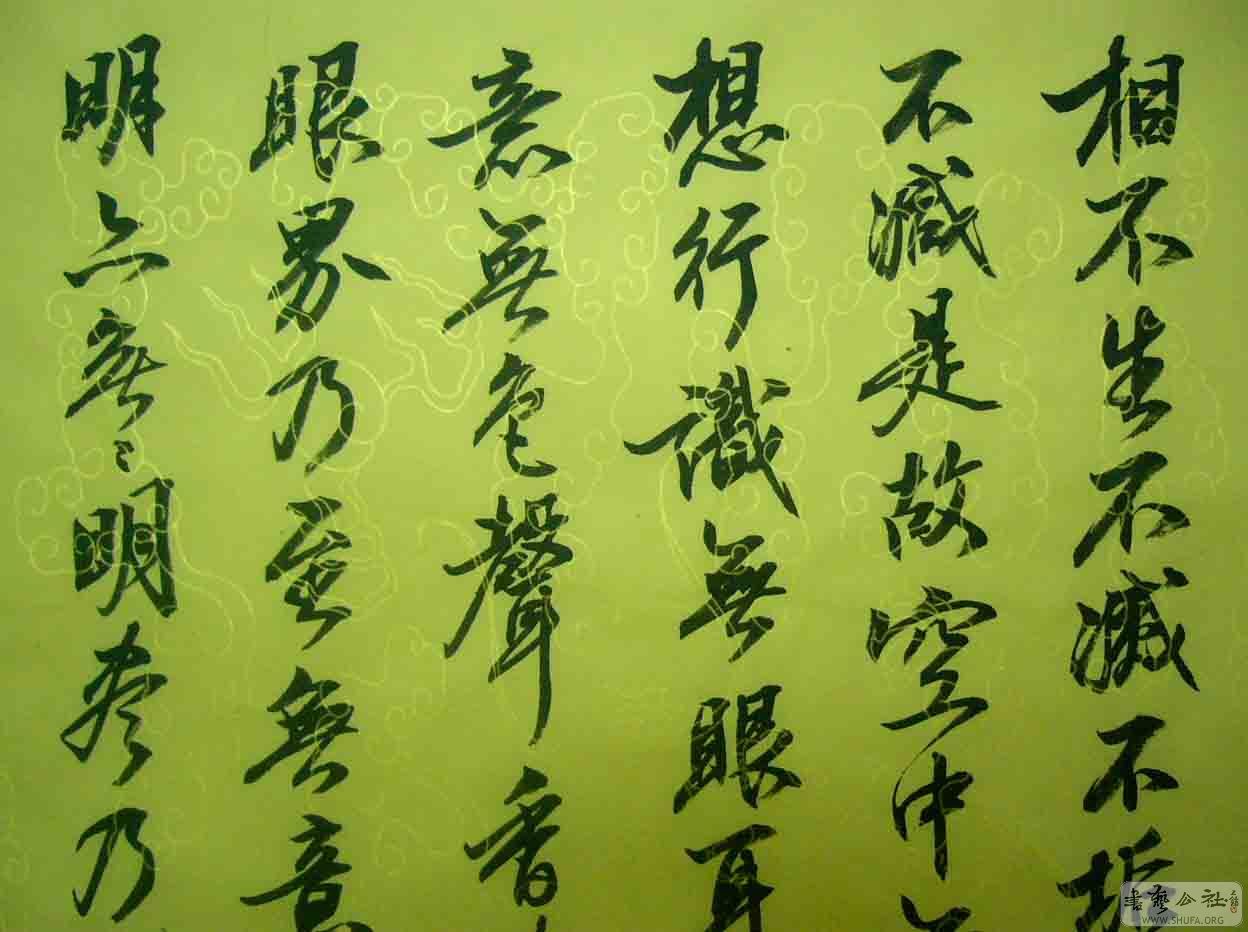 相不生不滅不
不減是故空中
想行識無眼耳
意無色聲香
眼界乃至無意
明亦無〻明盡乃
書藝公社
WWW.SHUFA.ORG